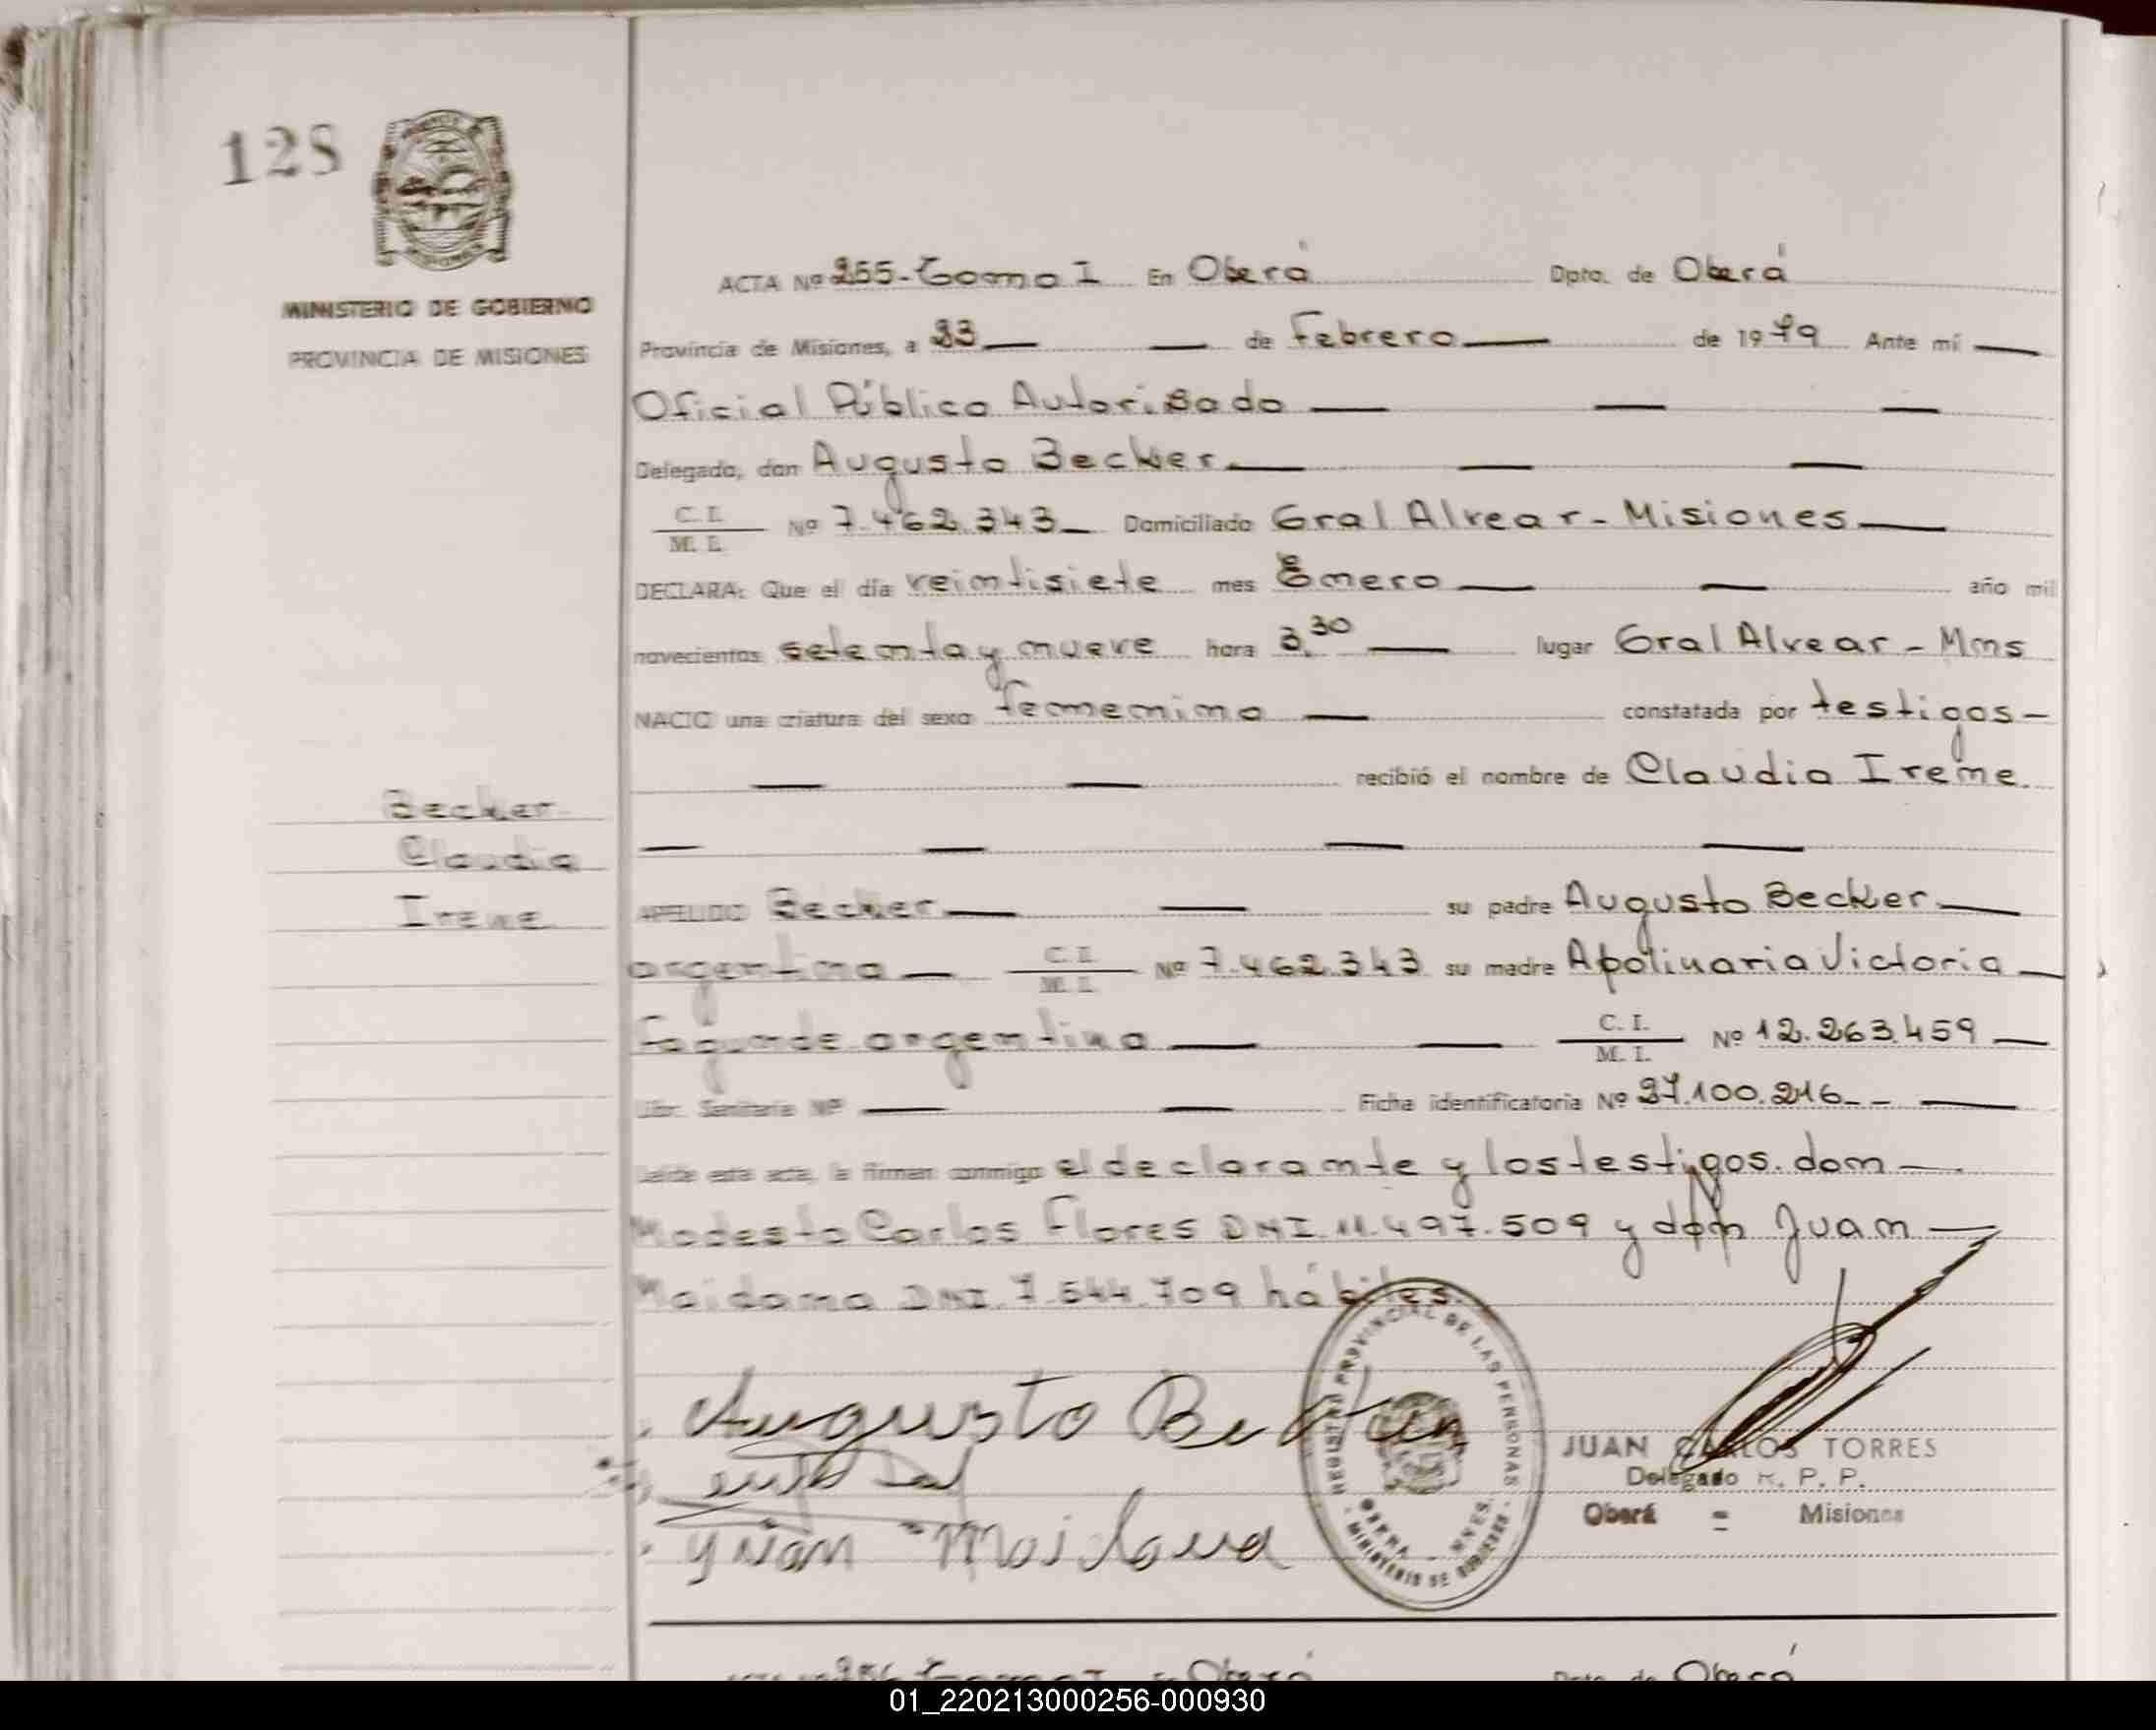 128
MINISTERIO DE GOBIERNO
PROVINCIA DE MISIONES
ACTA Nº 255-Tomo I En Oberá Dpto. de Oberá
Provincia de Misiones, a 23 de Febrero de 1979 Ante mí
Oficial Público Autorisado
Delegado, don Augusto Becker
C. I.
M. I. Nº 7.462.343 Domiciliado Gral Alvear - Misiones
DECLARA: Que el día veintisiete mes Enero año mil
novecientos setenta y nueve hora 3,30 lugar Gral Alvear - Mnes
NACIO una criatura del sexo femenino constatada por testigos
recibió el nombre de Claudia Irene.
Becker
Claudia
Irene
APELLIDO Becker su padre Augusto Becker
argentino C. I.
M. I. Nº 7.462.343 su madre Apolinaria Victoria
Fagunde argentina C. I.
M. I. Nº 12.263.459
Libr. Sanitaria Nº Ficha identificatoria Nº 27.100.216
Leída esta acta, la firman conmigo el declarante y los testigos. don
Modesto Carlos Flores DNI. 11.497.509 y don Juan
Maidana DNI. 7.544.709 hábiles.
Augusto Becker
Juan Maidana
REGISTRO PROVINCIAL DE LAS PERSONAS
OBERA - MNES.
MINISTERIO DE GOBIERNO
JUAN CARLOS TORRES
Delegado R. P. P.
Oberá = Misiones
256 Tomo I En Oberá Dpto. de Oberá
01_220213000256-000930